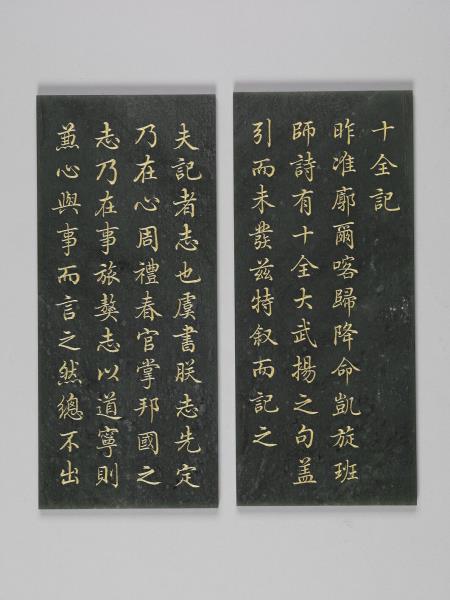 十全記
昨准廓爾喀歸降命凱旋班
師詩有十全大武揚之句盖
引而未發茲特叙而記之
夫記者志也虞書朕志先定
乃在心周禮春官掌邦國之
志乃在事旅獒志以道寧則
兼心與事而言之然總不出